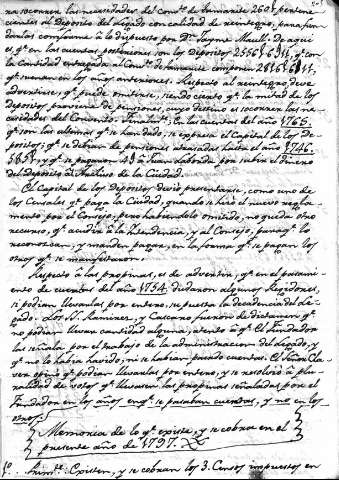 na socorrer las necesidades del Conv.to de Samaniste 260 ⅌ pertene-
cientes al deposito del Legado con calidad de reintegro, para fun-
darlas conforme à lo dispuesto por D.n Jayme Maull. De aqui
es, q.e en las cuentas posteriores son los depositos 2556 ⅌ 6 , q.e con
la Cantidad entregada al Conv.to de componen
q.e suenan en los años anteriores. Respecto al reintegro deve
advertirse, q.e puede omitirse, siendo cierto q.e la mitad de los
depositos proviene de pensiones, cuyo destino es socorrer las ne-
cesidades del Convento. Finalm.te En las cuentas del año 1765.
q.e son las ultimas q.e se han dado, se expresa el Capital de los De-
positos; q.e se debian de pensiones atrasadas hasta el año 1746.
y q.e se pagaron à Juan por subir el dinero
del deposito al Archivo de la Ciudad.
El Capital de los depositos devió presentarse, como uno de
los Censales q.e paga la Ciudad, quando se hizo el nuevo regla-
mento por el Consejo, pero habiendolo omitido, no queda otro
recurso, q.e acudir à la Intendencia, y al Consejo, para q.e lo
reconozcan, y manden pagar, en la forma q.e se pagan los
otros q.e se manifestaron.
Respecto à las propinas, es de advertir, q.e en el pasami-
ento de cuentas del año 1754. dudaron algunos Regidores,
si podian llevarlas por entero, respuesta la decadencia del Le-
gado. Los S.S. Ramirez, y Cascaro fueron de dictamen q.e
no podian llevar cantidad alguna, atento à q.e El Fundador
las señala por el trabajo de la administracion del Legado, y
q.e no lo havia havido, ni se habian pasado cuentas. El Señor Cla-
ver opinó q.e podian llevarlas por entero, y se resolvió à plu-
ralidad de votos q.e llevasen las propinas señaladas por el
Fundador en los años en q.e se pasaban cuentas, y no en los
otros.
Memoria de lo q.e existe, y se cobra en el
presente año de 1797.
1.º Prim.te Existen, y se cobran los 3. Censos impuestos en